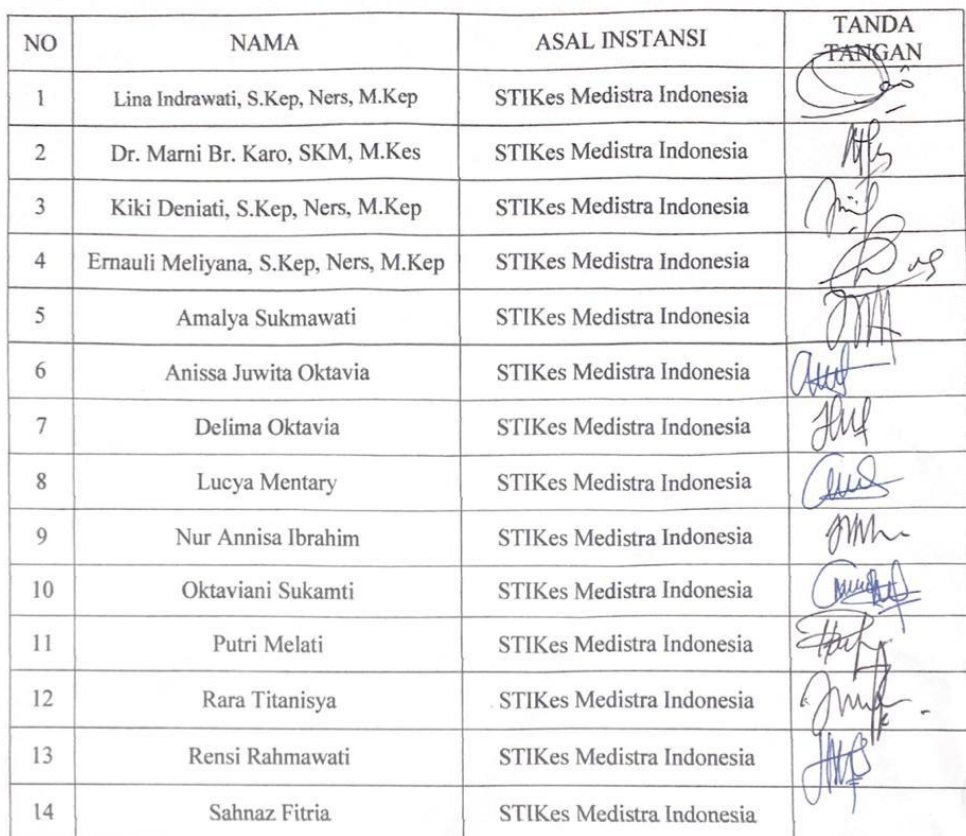 NO NAMA ASAL INSTANSI TANDA TANGAN
1 Lina Indrawati, S.Kep, Ners, M.Kep STIKes Medistra Indonesia
2 Dr. Marni Br. Karo, SKM, M.Kes STIKes Medistra Indonesia
3 Kiki Deniati, S.Kep, Ners, M.Kep STIKes Medistra Indonesia
4 Ernauli Meliyana, S.Kep, Ners, M.Kep STIKes Medistra Indonesia
5 Amalya Sukmawati STIKes Medistra Indonesia
6 Anissa Juwita Oktavia STIKes Medistra Indonesia
7 Delima Oktavia STIKes Medistra Indonesia
8 Lucya Mentary STIKes Medistra Indonesia
9 Nur Annisa Ibrahim STIKes Medistra Indonesia
10 Oktaviani Sukamti STIKes Medistra Indonesia
11 Putri Melati STIKes Medistra Indonesia
12 Rara Titanisya STIKes Medistra Indonesia
13 Rensi Rahmawati STIKes Medistra Indonesia
14 Sahnaz Fitria STIKes Medistra Indonesia